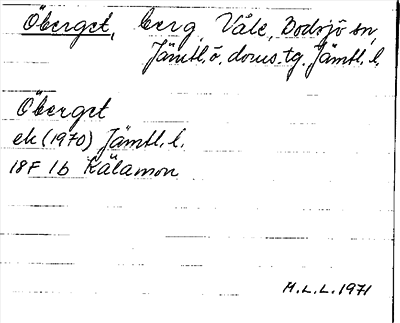 Öberget, berg, Våle, Bodsjö sn,
Jämtl. ö. doms. tg. Jämtl. l.
Öberget
ek (1970) Jämtl. l.
18F 1b Kälamon
H.L.L. 1971